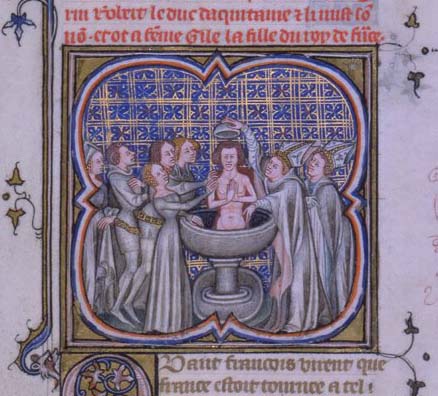 rin Robert le duc daquitaine ⁊ li mist sō
nō. et ot a fēme Gile la fille du roy de frāce.
Quant francois virent que
france estoit tournee a tel